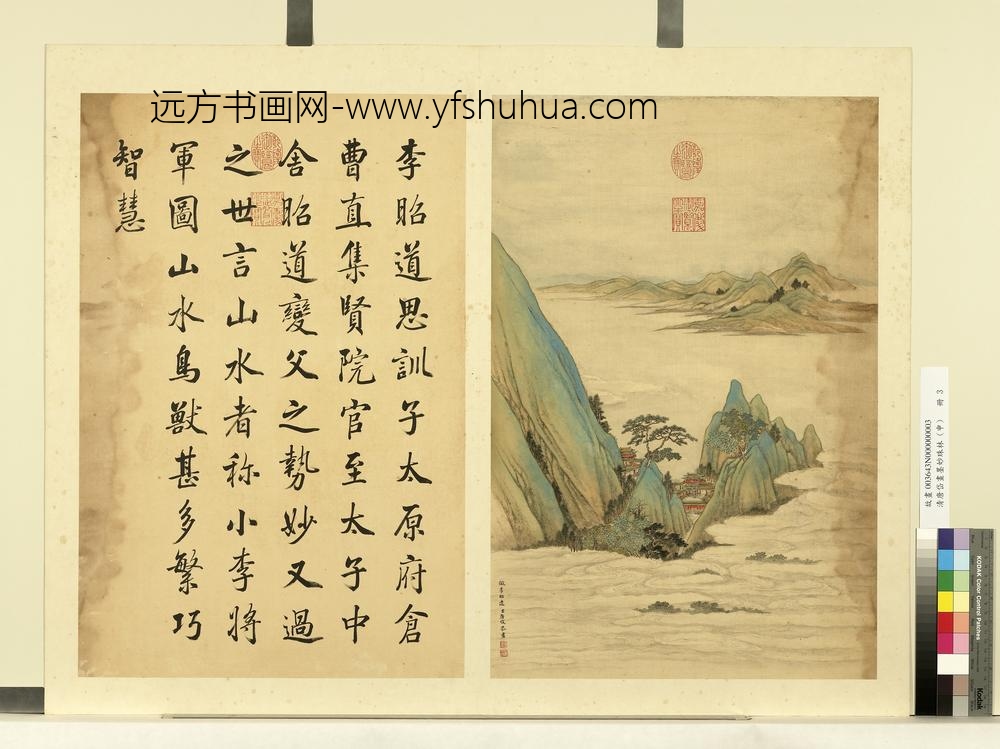 远方书画网-www.yfshuhua.com
李昭道思訓子太原府倉
曹直集賢院官至太子中
舍昭道變父之勢妙又過
之世言山水者称小李將
軍圖山水鳥獸甚多繁巧
智慧
故畫003643N000000003
清唐岱畫墨妙珠林(申) 冊 3
KODAK Color Control Patches
Kodak